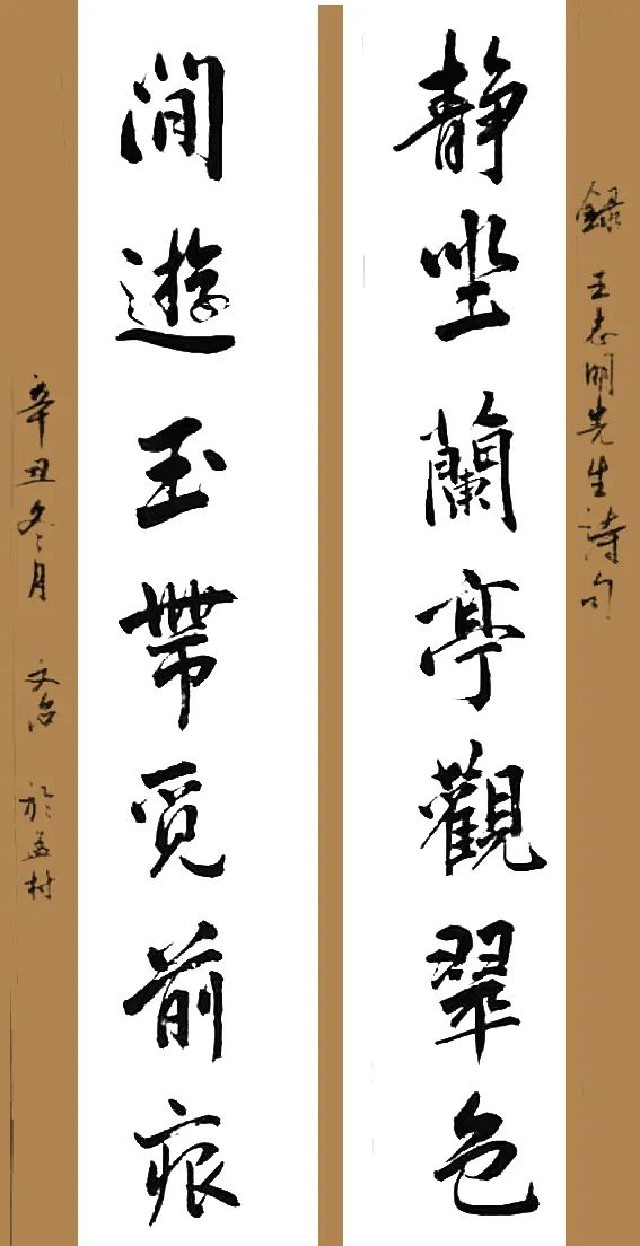 録 王志明先生詩句
静坐蘭亭觀翠色
閒遊玉帶覓前痕
辛丑冬月 文治 於孟村